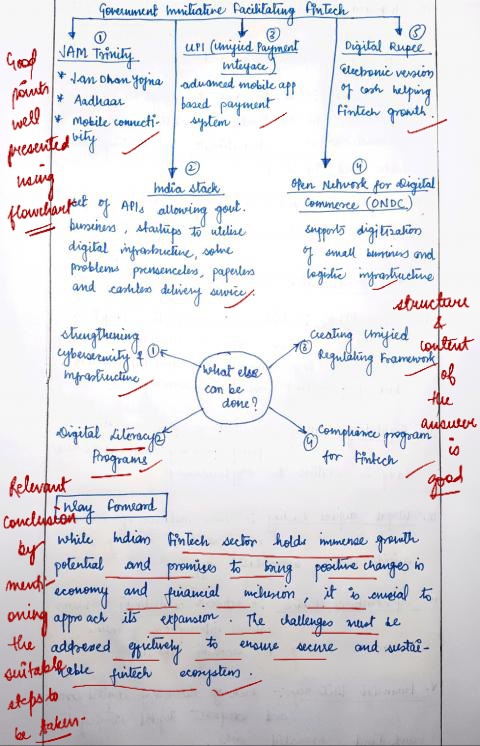 Government Initiative Facilitating Fintech
①
JAM Trinity
* Jan Dhan Yojna
* Aadhaar
* Mobile connecti-
vity
③
UPI (Unified Payment
Interface)
advanced mobile app
based payment
system.
⑤
Digital Rupee
Electronic version
of cash helping
Fintech growth.
②
India Stack
Set of APIs allowing govt.
business, startups to utilise
digital infrastructure, solve
problems presenceless, paperless
and cashless delivery service.
④
Open Network for Digital
Commerce (ONDC)
supports digitisation
of small business and
logistic infrastructure
Good
points
well
presented
using
flowchart
What else
can be
done?
strengthening
cybersecurity ①
Infrastructure
Digital Literacy ②
Programs
③ Creating Unified
Regulating Framework
④ Compliance program
for Fintech
structure
&
content
of
the
answer
is
good
Way Forward
While Indian Fintech sector holds immense growth
potential and promises to bring positive changes in
economy and financial inclusion, it is crucial to
approach its expansion. The challenges must be
addressed effectively to ensure secure and sustai-
nable fintech ecosystem.
Relevant
conclusion
by
menti-
oning
the
suitable
steps to
be taken-